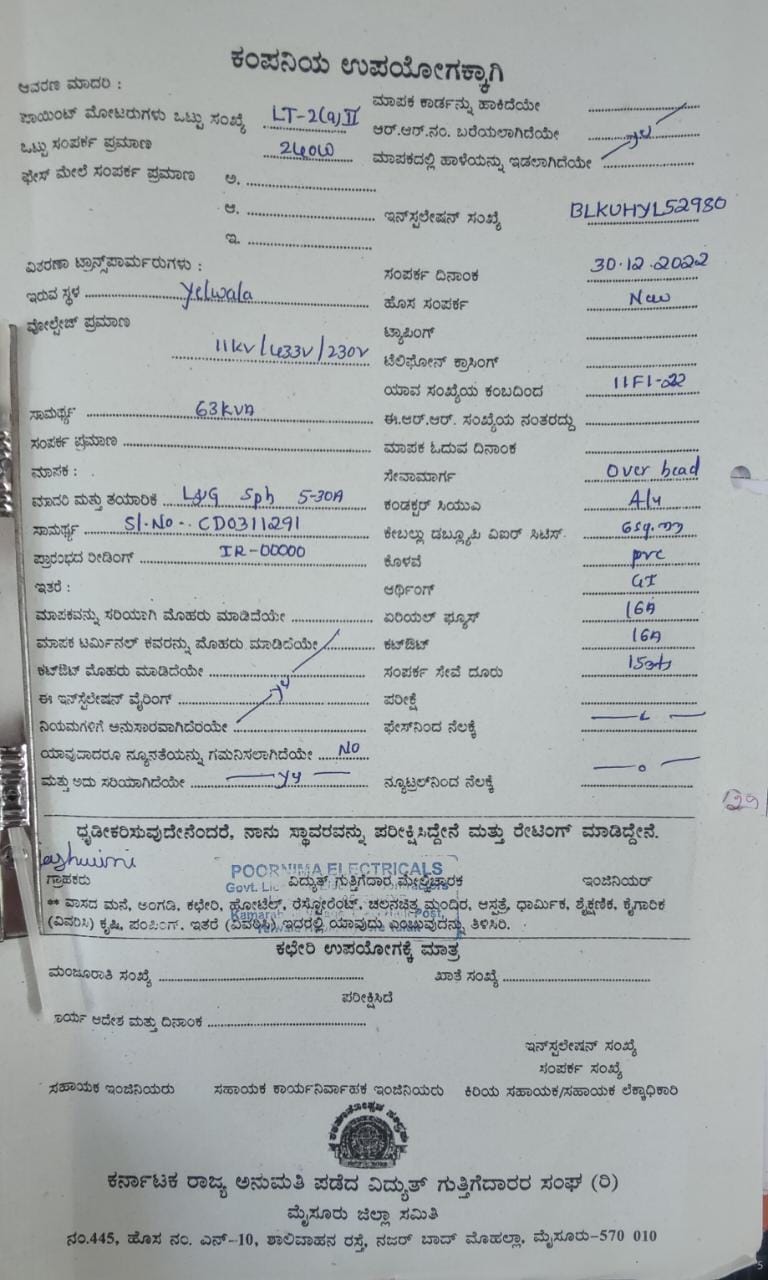 ಕಂಪನಿಯ ಉಪಯೋಗಕ್ಕಾಗಿ
ಆವರಣ ಮಾದರಿ :
ಮಾಪಕ ಕಾರ್ಡನ್ನು ಹಾಕಿದೆಯೇ
ಪಾಯಿಂಟ್ ಮೋಟರುಗಳು ಒಟ್ಟು ಸಂಖ್ಯೆ LT-2(a)II
ಆರ್.ಆರ್.ನಂ. ಬರೆಯಲಾಗಿದೆಯೇ
ಒಟ್ಟು ಸಂಪರ್ಕ ಪ್ರಮಾಣ 240W
ಮಾಪಕದಲ್ಲಿ ಹಾಳೆಯನ್ನು ಇಡಲಾಗಿದೆಯೇ
ಫೇಸ್ ಮೇಲೆ ಸಂಪರ್ಕ ಪ್ರಮಾಣ ಅ.
ಆ.
ಇನ್‌ಸ್ಟಲೇಷನ್ ಸಂಖ್ಯೆ BLKUHYL52980
ಇ.
ವಿತರಣಾ ಟ್ರಾನ್ಸ್‌ಪಾರ್ಮರುಗಳು :
ಸಂಪರ್ಕ ದಿನಾಂಕ 30.12.2022
ಇರುವ ಸ್ಥಳ Yelwala
ಹೊಸ ಸಂಪರ್ಕ New
ವೋಲ್ಟೇಜ್ ಪ್ರಮಾಣ
ಟ್ಯಾಪಿಂಗ್
11KV/433V/230V
ಟೆಲಿಫೋನ್ ಕ್ರಾಸಿಂಗ್
ಯಾವ ಸಂಖ್ಯೆಯ ಕಂಬದಿಂದ 11F1-22
ಸಾಮರ್ಥ್ಯ 63KVA
ಈ.ಆರ್.ಆರ್. ಸಂಖ್ಯೆಯ ನಂತರದ್ದು
ಸಂಪರ್ಕ ಪ್ರಮಾಣ
ಮಾಪಕ ಓದುವ ದಿನಾಂಕ
ಮಾಪಕ :
ಸೇವಾಮಾರ್ಗ Over head
ಮಾದರಿ ಮತ್ತು ತಯಾರಿಕೆ L&G Sph 5-30A
ಕಂಡಕ್ಟರ್ ಸಿಯುಎ A/u
ಸಾಮರ್ಥ್ಯ Sl.No-. CD0311291
ಕೇಬಲ್ಲು ಡಬ್ಲ್ಯೂಪಿ ವಿಐರ್ ಸಿಟಿಸ್. 6sq.m
ಪ್ರಾರಂಭದ ರೀಡಿಂಗ್ IR-00000
ಕೊಳವೆ pvc
ಇತರೆ :
ಆರ್ಥಿಂಗ್ GI
ಮಾಪಕವನ್ನು ಸರಿಯಾಗಿ ಮೊಹರು ಮಾಡಿದೆಯೇ
ಏರಿಯಲ್ ಫ್ಯೂಸ್ 16A
ಮಾಪಕ ಟರ್ಮಿನಲ್ ಕವರನ್ನು ಮೊಹರು ಮಾಡಿದೆಯೇ
ಕಟ್‌ಔಟ್ 16A
ಕಟ್‌ಔಟ್ ಮೊಹರು ಮಾಡಿದೆಯೇ
ಸಂಪರ್ಕ ಸೇವೆ ದೂರು
ಈ ಇನ್‌ಸ್ಟಲೇಷನ್ ವೈರಿಂಗ್
ಪರೀಕ್ಷೆ
ನಿಯಮಗಳಿಗೆ ಅನುಸಾರವಾಗಿದೆರಯೇ
ಫೇಸ್‌ನಿಂದ ನೆಲಕ್ಕೆ
ಯಾವುದಾದರೂ ನ್ಯೂನತೆಯನ್ನು ಗಮನಿಸಲಾಗಿದೆಯೇ NO
ಮತ್ತು ಅದು ಸರಿಯಾಗಿದೆಯೇ
ನ್ಯೂಟ್ರಲ್‌ನಿಂದ ನೆಲಕ್ಕೆ
129
ಧೃಡೀಕರಿಸುವುದೇನೆಂದರೆ, ನಾನು ಸ್ಥಾವರವನ್ನು ಪರೀಕ್ಷಿಸಿದ್ದೇನೆ ಮತ್ತು ರೇಟಿಂಗ್ ಮಾಡಿದ್ದೇನೆ.
POORNIMA ELECTRICALS
ಗ್ರಾಹಕರು ವಿದ್ಯುತ್ ಗುತ್ತಿಗೆದಾರ ಮೇಲ್ವಿಚಾರಕ ಇಂಜಿನಿಯರ್
** ವಾಸದ ಮನೆ, ಅಂಗಡಿ, ಕಛೇರಿ, ಹೋಟೆಲ್, ರೆಸ್ಟೋರೆಂಟ್, ಚಲನಚಿತ್ರ ಮಂದಿರ, ಆಸ್ಪತ್ರೆ, ಧಾರ್ಮಿಕ, ಶೈಕ್ಷಣಿಕ, ಕೈಗಾರಿಕ
(ವಿವರಿಸಿ) ಕೃಷಿ, ಪಂಪಿಂಗ್. ಇತರೆ (ವಿವರಿಸಿ) ಇದರಲ್ಲಿ ಯಾವುದು ಎಂಬುವುದನ್ನು ತಿಳಿಸಿರಿ.
ಕಛೇರಿ ಉಪಯೋಗಕ್ಕೆ ಮಾತ್ರ
ಮಂಜೂರಾತಿ ಸಂಖ್ಯೆ ಖಾತೆ ಸಂಖ್ಯೆ
ಪರೀಕ್ಷಿಸಿದೆ
ಕಾರ್ಯ ಆದೇಶ ಮತ್ತು ದಿನಾಂಕ
ಇನ್‌ಸ್ಟಲೇಷನ್ ಸಂಖ್ಯೆ
ಸಂಪರ್ಕ ಸಂಖ್ಯೆ
ಸಹಾಯಕ ಇಂಜಿನಿಯರು ಸಹಾಯಕ ಕಾರ್ಯನಿರ್ವಾಹಕ ಇಂಜಿನಿಯರು ಕಿರಿಯ ಸಹಾಯಕ/ಸಹಾಯಕ ಲೆಕ್ಕಾಧಿಕಾರಿ
ಕರ್ನಾಟಕ ರಾಜ್ಯ ಅನುಮತಿ ಪಡೆದ ವಿದ್ಯುತ್ ಗುತ್ತಿಗೆದಾರರ ಸಂಘ (ರಿ)
ಮೈಸೂರು ಜಿಲ್ಲಾ ಸಮಿತಿ
ನಂ.445, ಹೊಸ ನಂ. ಎನ್-10, ಶಾಲಿವಾಹನ ರಸ್ತೆ, ನಜರ್ ಬಾದ್ ಮೊಹಲ್ಲಾ, ಮೈಸೂರು-570 010
5